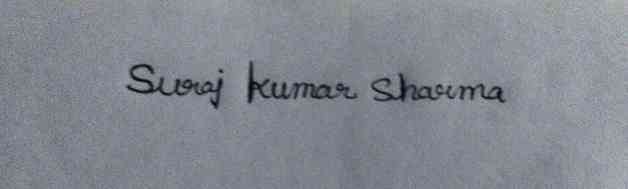 Suraj kumar Sharma